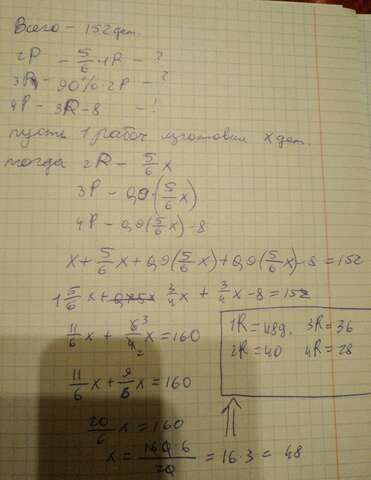 Всего - 152 дет.
2Р - 5/6 · 1R - ?
3R - 90% · 2Р - ?
4Р - 3R - 8 - !
пусть 1 рабоч. изготовил x дет.
тогда 2R - 5/6 x
3Р - 0,9 · (5/6 x)
4Р - 0,9 (5/6 x) - 8
x + 5/6 x + 0,9 (5/6 x) + 0,9 (5/6 x) - 8 = 152
1 5/6 x + 3/4 x + 3/4 x - 8 = 152
11/6 x + 6 3/4 2 x = 160
11/6 x + 9/6 x = 160
20/6 x = 160
x = 160 · 6/20 = 16 · 3 = 48
1R = 48д, 3R = 36
2R = 40 4R = 28